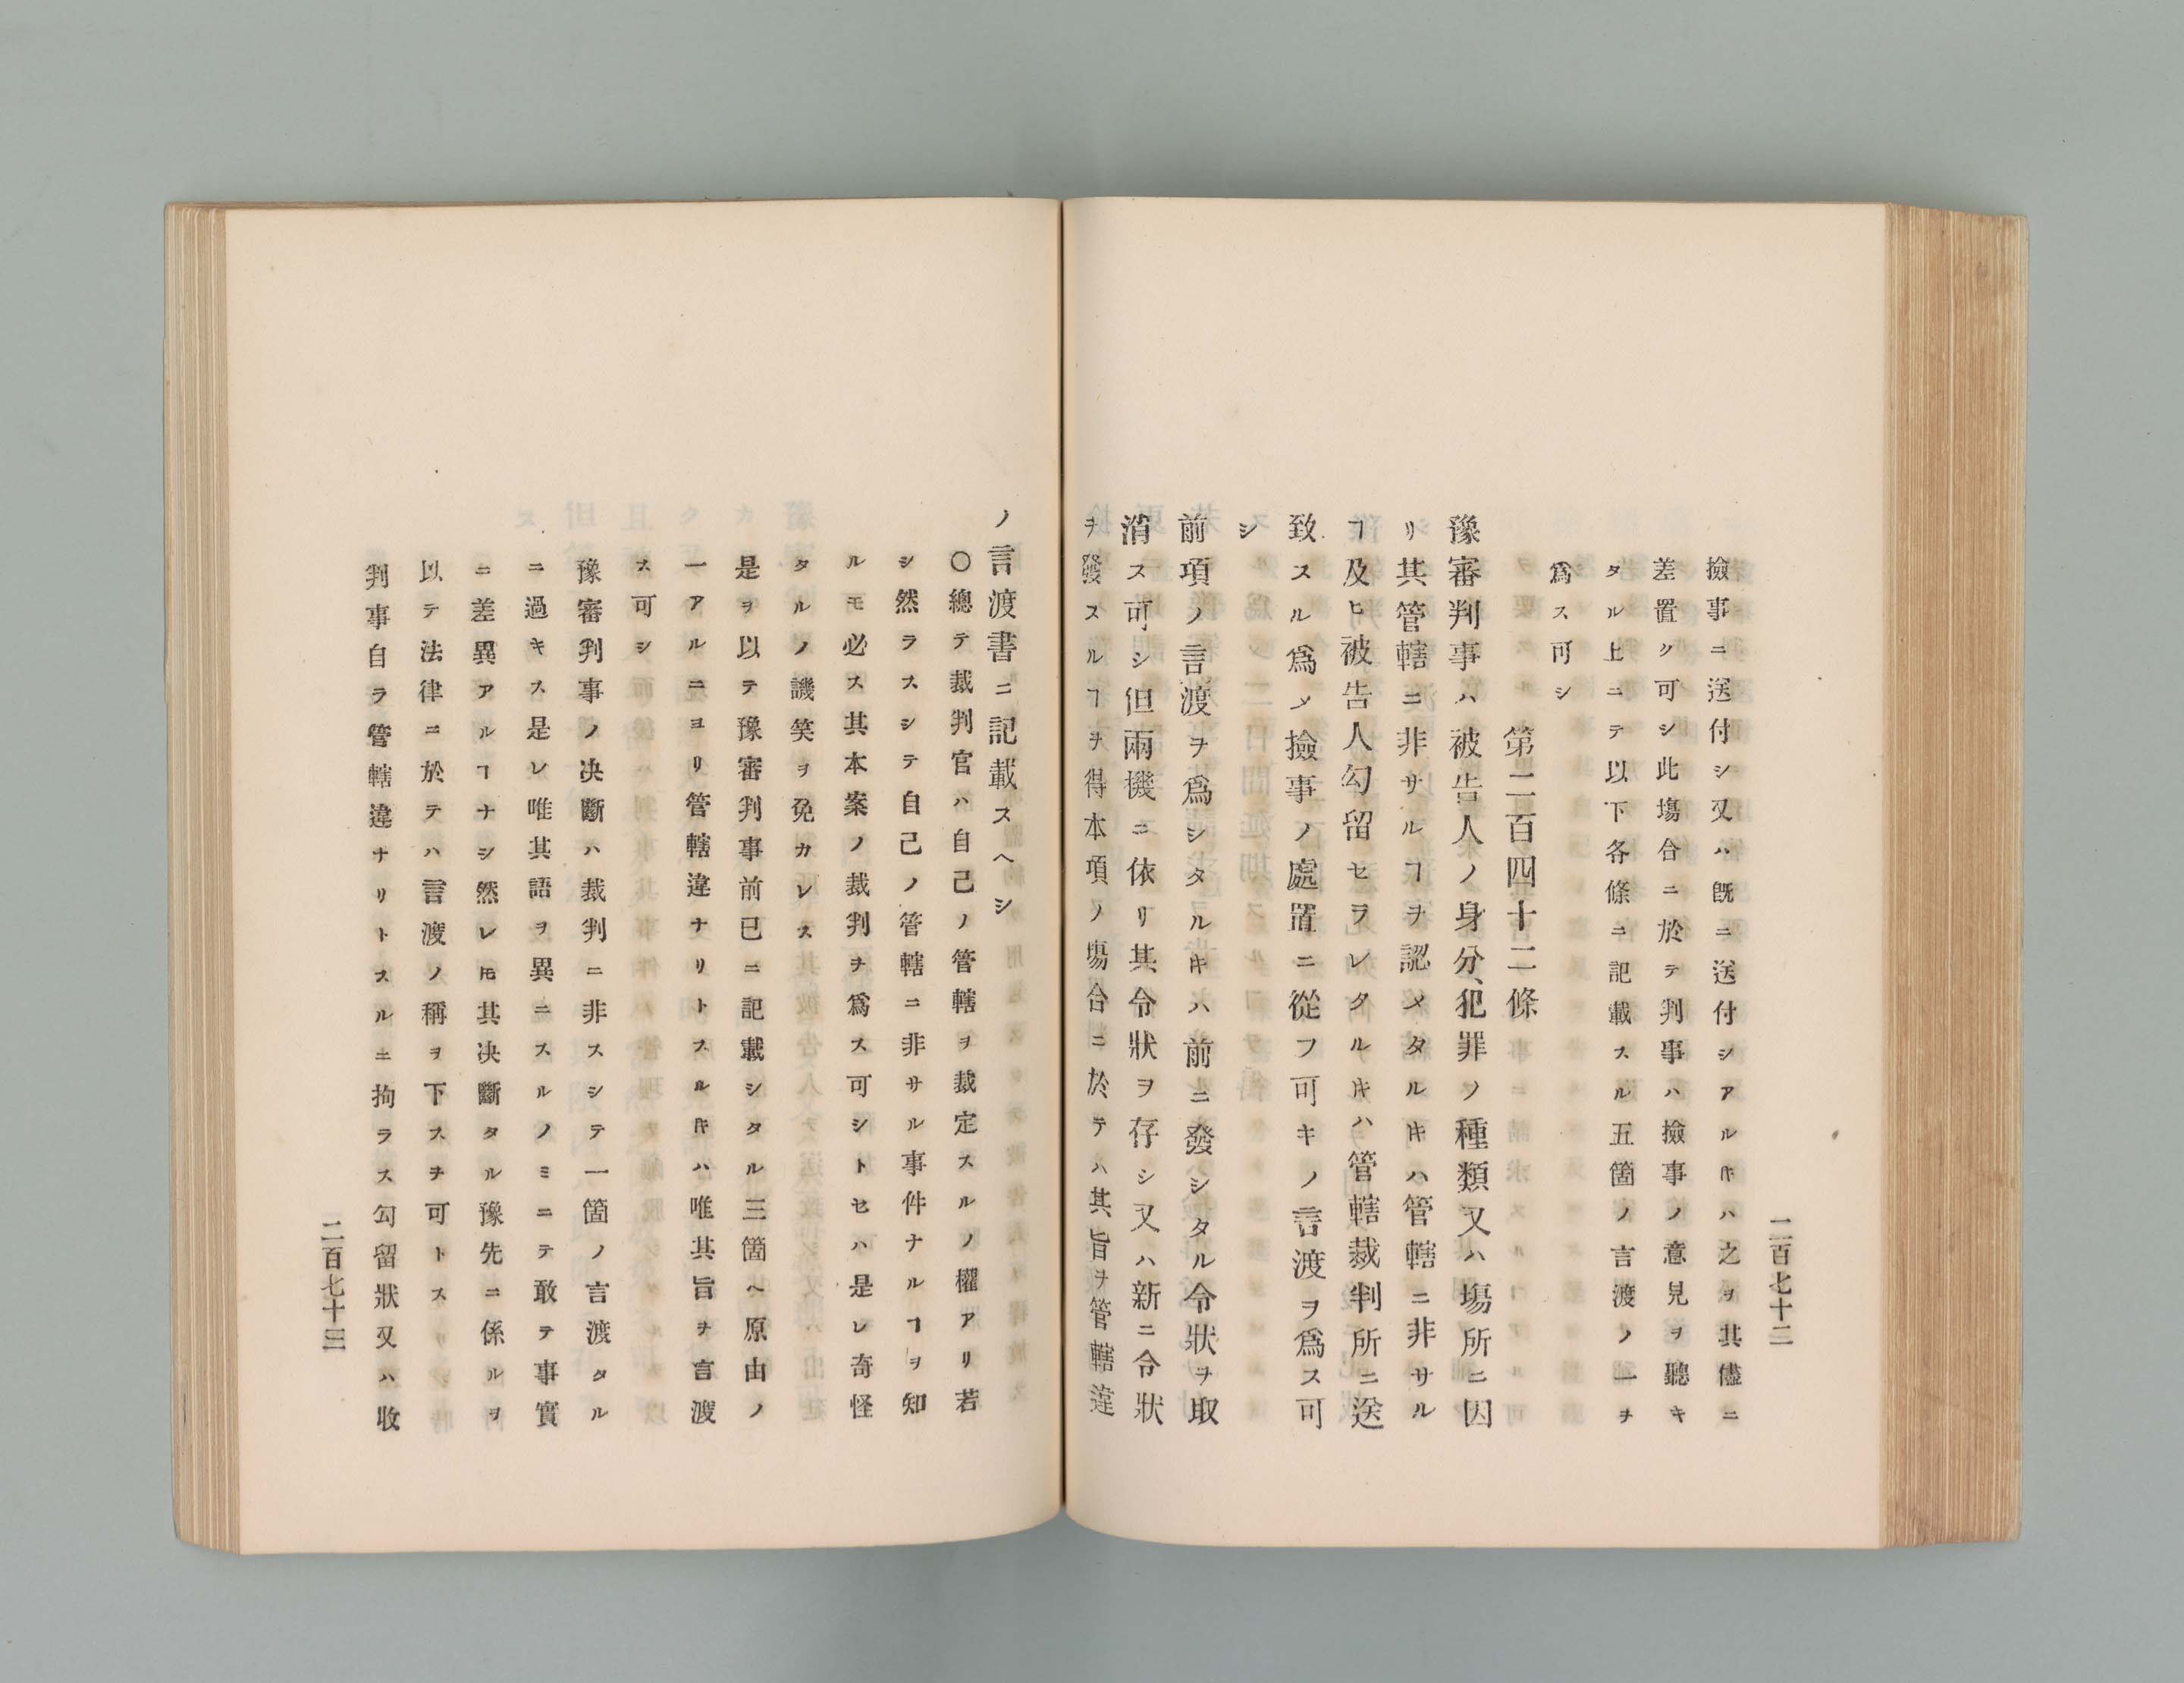 檢事ニ送付シ又ハ旣ニ送付シアルキハ之ヲ其儘ニ
差置ク可シ此塲合ニ於テ判事ハ檢事ノ意見ヲ聽キ
タル上ニテ以下各條ニ記載スル五箇ノ言渡ノ一ヲ
爲ス可シ
第二百四十二條
豫審判事ハ被告人ノ身分、犯罪ノ種類又ハ塲所ニ因
リ其管轄ニ非サルヿヲ認メタルキハ管轄ニ非サル
ヿ及ヒ被告人勾留セラレタルキハ管轄裁判所ニ送
致スル爲メ檢事ノ處置ニ從フ可キノ言渡ヲ爲ス可
シ
前項ノ言渡ヲ爲シタルキハ前ニ發シタル令狀ヲ取
消ス可シ但兩機ニ依リ其令狀ヲ存シ又ハ新ニ令狀
ヲ發スルヿヲ得本項ノ塲合ニ於テハ其旨ヲ管轄違
二百七十二
ノ言渡書ニ記載スヘシ
○總テ裁判官ハ自己ノ管轄ヲ裁定スルノ權アリ若
シ然ラスシテ自己ノ管轄ニ非サル事件ナルヿヲ知
ルモ必ス其本案ノ裁判ヲ爲ス可シトセハ是レ奇怪
タルノ譏笑ヲ免カレス
是ヲ以テ豫審判事前已ニ記載シタル三箇ヘ原由ノ
一アルニヨリ管轄違ナリトスルキハ唯其旨ヲ言渡
ス可シ
豫審判事ノ决斷ハ裁判ニ非スシテ一箇ノ言渡タル
ニ過キス是レ唯其語ヲ異ニスルノミニテ敢テ事實
ニ差異アルヿナシ然レ𪜈其决斷タル豫先ニ係ルヲ
以テ法律ニ於テハ言渡ノ稱ヲ下スヲ可トス
判事自ラ管轄違ナリトスルニ拘ラス勾留狀又ハ收
二百七十三